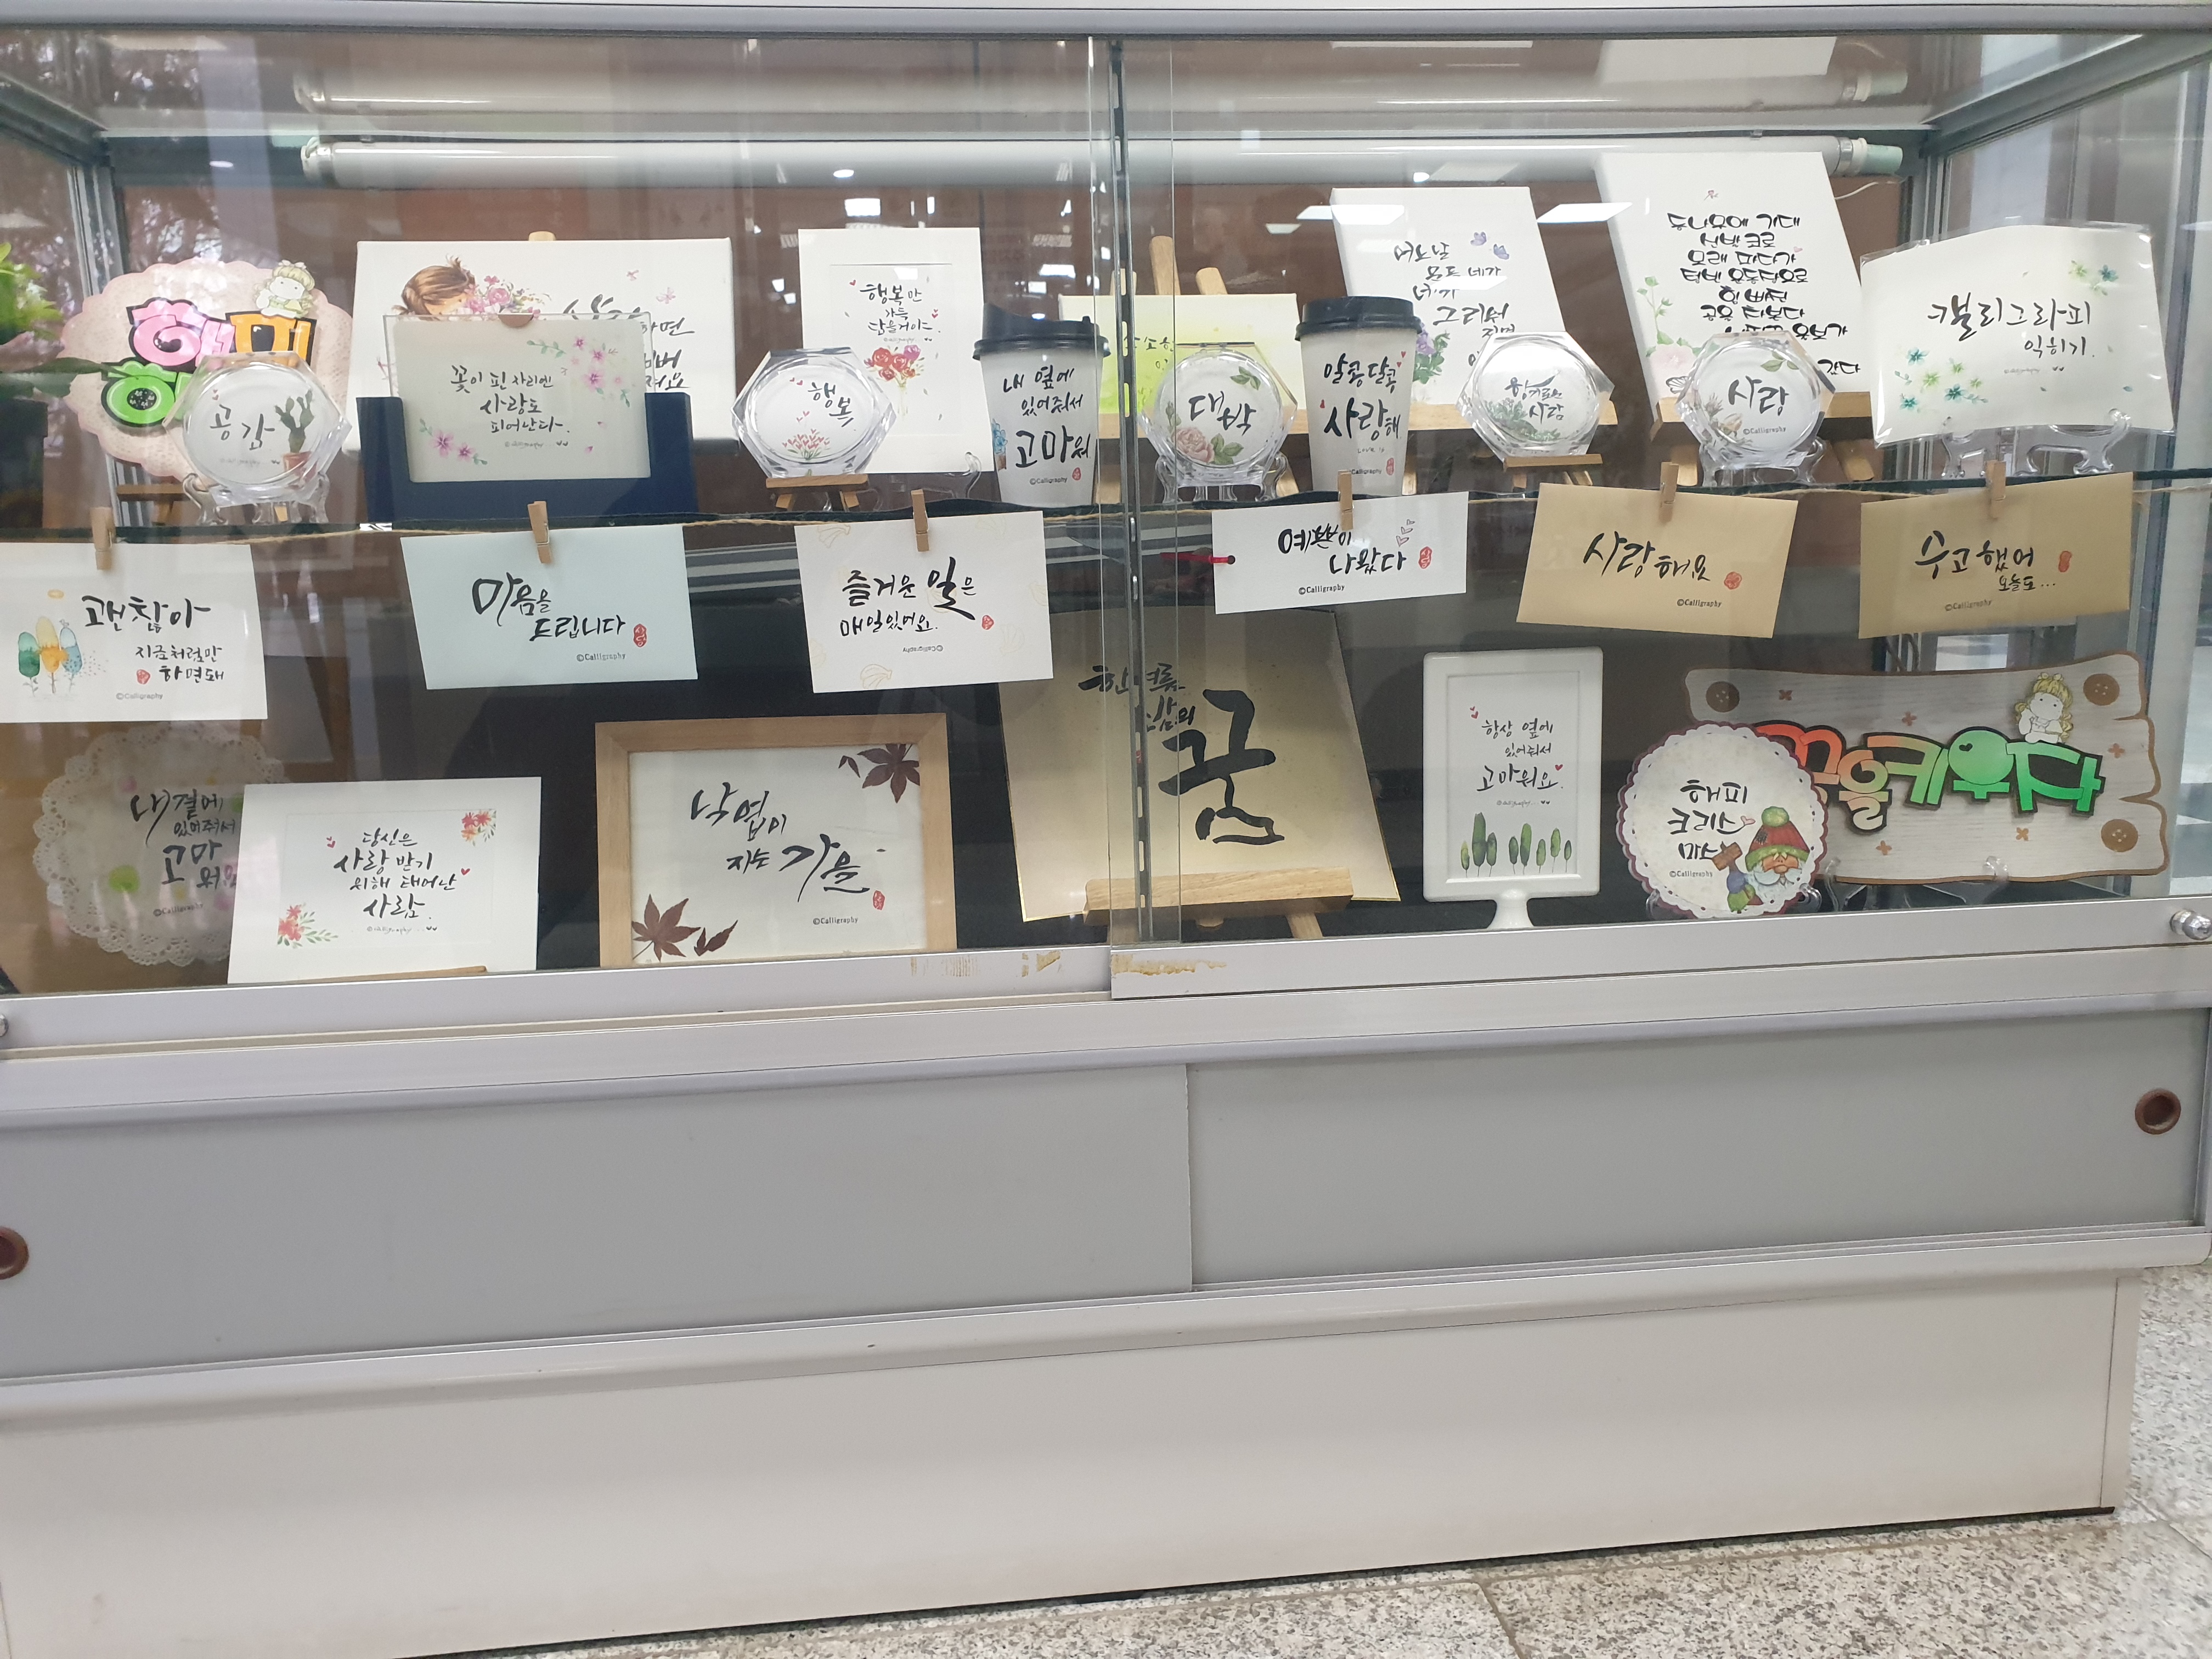 공감
꽃이 핀 자리엔
사랑도
피어난다.
행복만
가득
담을거야.
행복
내 옆에
있어줘서
고마워
©Calligraphy
대박
알콩달콩
사랑해
Love is
©Calligraphy
어느날
문득 네가
그리워
사람
사랑
©Calligraphy
캘리그라피
익히기.
괜찮아
지금처럼만
하면돼
©Calligraphy
마음을
드립니다
©Calligraphy
즐거운 일은
매일있어요.
©Calligraphy
예쁜이
나왔다
©Calligraphy
사랑해요
©Calligraphy
수고했어
오늘도...
©Calligraphy
내곁에
있어줘서
고마
워
©Calligraphy
당신은
사랑받기
위해 태어난
사람.
낙엽이
지는 가을
©Calligraphy
한여름
밤의
꿈
항상 옆에
있어줘서
고마워요.
해피
크리스
마스
©Calligraphy
꿈을키우자